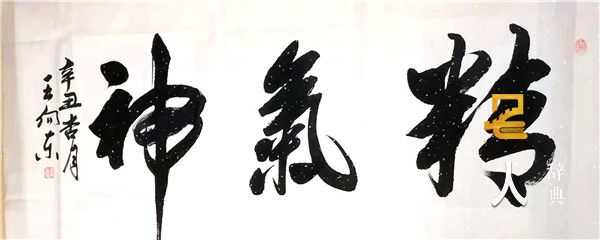 精氣神
辛丑杏月
王向东
人
辞典